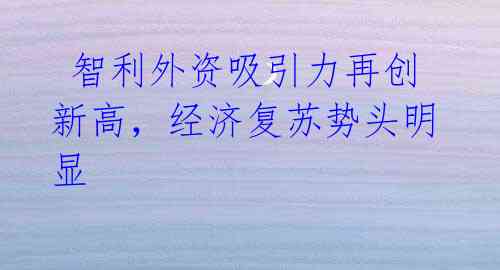 智利外资吸引力再创
新高，经济复苏势头明
显